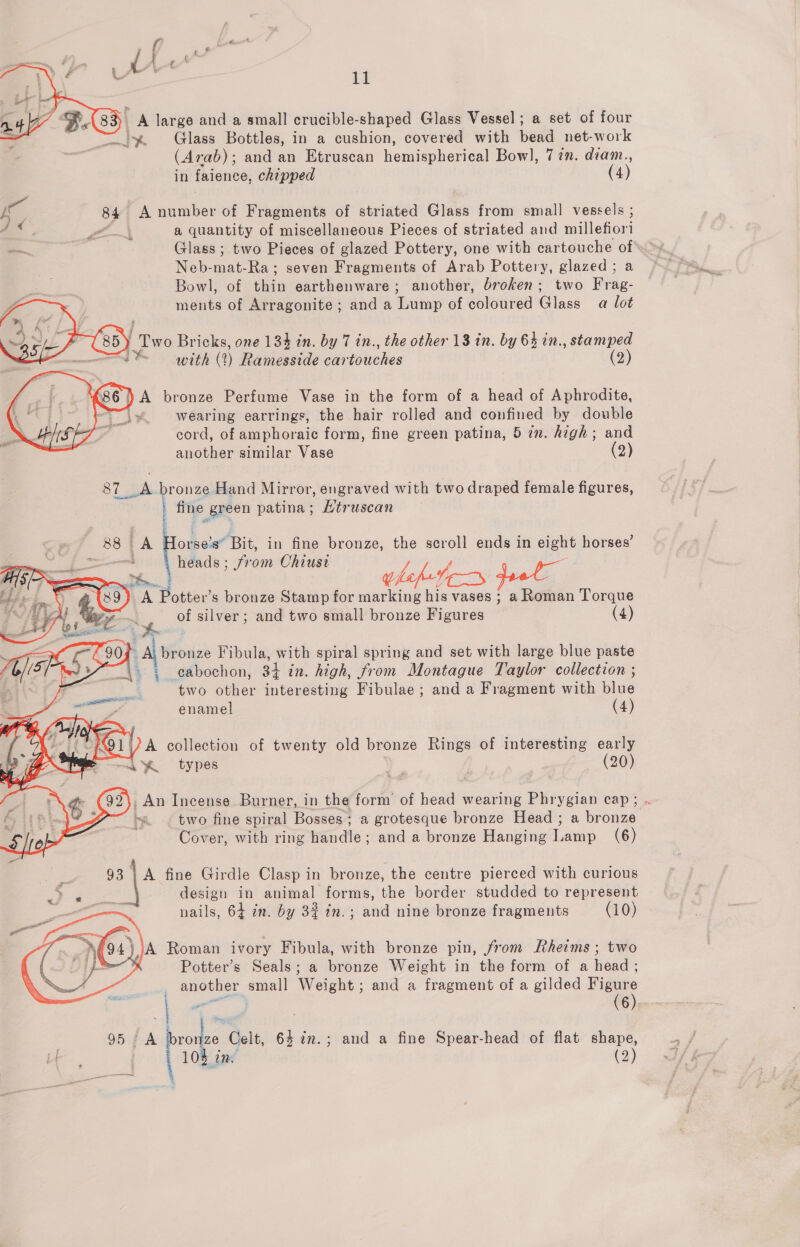 11
83 A large and a small crucible-shaped Glass Vessel; a set of four
Glass Bottles, in a cushion, covered with bead net-work
(Arab); and an Etruscan hemispherical Bowl, 7 in. diam.,
in faience, chipped (4)
84 A number of Fragments of striated Glass from small vessels;
a quantity of miscellaneous Pieces of striated and millefiori
Glass; two Pieces of glazed Pottery, one with cartouche of
Neb-mat-Ra; seven Fragments of Arab Pottery, glazed; a
Bowl, of thin earthenware; another, broken; two Frag-
ments of Arragonite; and a Lump of coloured Glass a lot
85 Two Bricks, one 13½ in. by 7 in., the other 13 in. by 6½ in., stamped
with (?) Ramesside cartouches (2)
86 A bronze Perfume Vase in the form of a head of Aphrodite,
wearing earrings, the hair rolled and confined by double
cord, of amphoraic form, fine green patina, 5 in. high; and
another similar Vase (2)
87 A bronze Hand Mirror, engraved with two draped female figures,
fine green patina; Etruscan
88 A Horse's Bit, in fine bronze, the scroll ends in eight horses'
heads; from Chiusi
89 A Potter's bronze Stamp for marking his vases; a Roman Torque
of silver; and two small bronze Figures (4)
90 A bronze Fibula, with spiral spring and set with large blue paste
cabochon, 3¼ in. high, from Montague Taylor collection;
two other interesting Fibulae; and a Fragment with blue
enamel (4)
91 A collection of twenty old bronze Rings of interesting early
types (20)
92 An Incense Burner, in the form of head wearing Phrygian cap;
two fine spiral Bosses; a grotesque bronze Head; a bronze
Cover, with ring handle; and a bronze Hanging Lamp (6)
93 A fine Girdle Clasp in bronze, the centre pierced with curious
design in animal forms, the border studded to represent
nails, 6¼ in. by 3¾ in.; and nine bronze fragments (10)
94 A Roman ivory Fibula, with bronze pin, from Rheims; two
Potter's Seals; a bronze Weight in the form of a head;
another small Weight; and a fragment of a gilded Figure
(6)
95 A bronze Celt, 6½ in.; and a fine Spear-head of flat shape,
10½ in. (2)